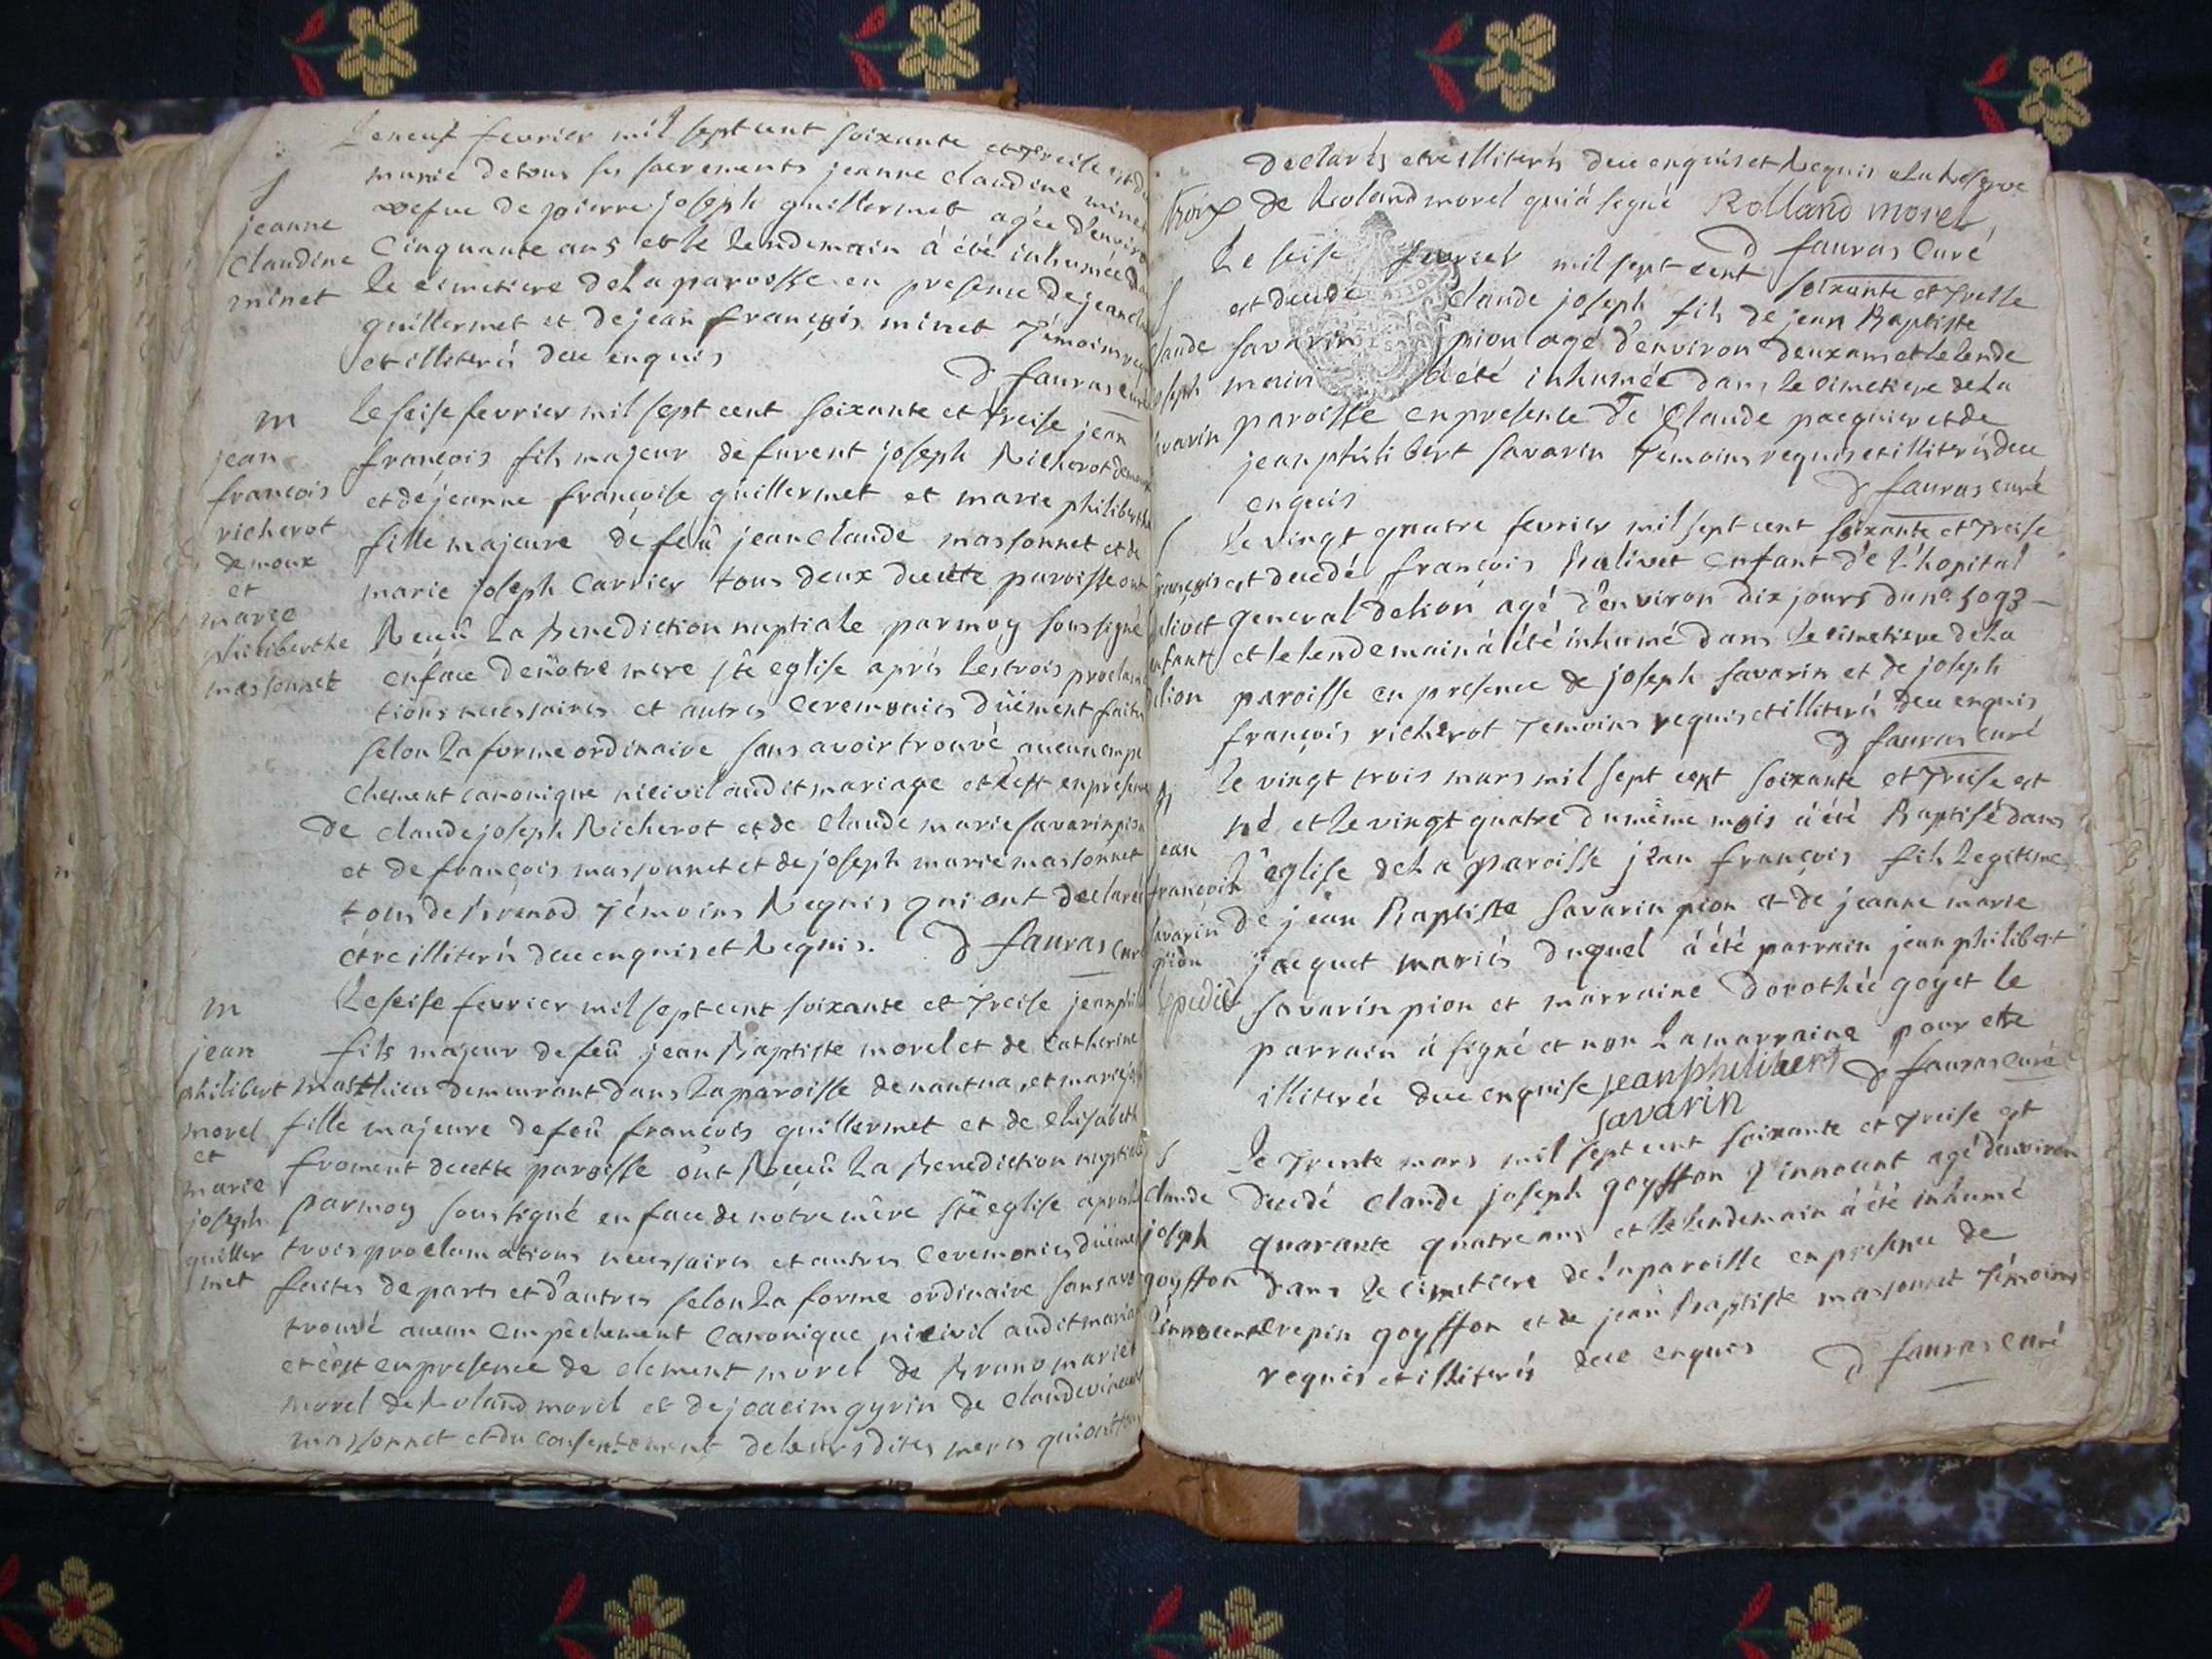 Le neuf fevrier mil sept cent soixante et treise est
munie de tous ses sacrements jeanne claudine minet
vefue de pierre joseph guillermet agée d'enviro
cinquante ans et le lendemain á été inhumée
le cimetiere de la paroisse en presence de jean
guillermet et de jean françois minet témoins
et illiterés dece enquis
D fauras curé
S
jeanne
claudine
minet
Le seise fevrier mil sept cent soixante et treise jean
françois fils majeur de furent joseph Richerot
et de jeanne françoise guillermet et marie philiberthe
fille majeure de feû jean claude massonnet et de
marie joseph Carrier tous deux de cette paroisse ont
Receû La Benediction nuptiale par moy soussigné
en face de nôtre mere ste eglise aprés les trois proclama
tions necessaires et autres ceremonies düement faites
selon La forme ordinaire sans avoir trouvé aucun empe
chement canonique ni civil audit mariage et c'est en presence
de claude joseph Richerot et de claude marie savarin pion
et de françois massonnet et de joseph marie massonnet
tous de Brenod témoins Requis qui ont declarés
étre illiterés dece enquis et Requis. D fauras curé
m
jean
françois
richerot
demoux
et
marie
philiberthe
massonnet
Le seise fevrier mil sept cent soixante et treise jean
fils majeur de feû jean Baptiste morel et de Catherine
matthieu demeurant dans La paroisse de nantua et marie
fille majeure de feû françois guillermet et de elisabeth
froment de cette paroisse ont Receû La Benediction nuptiale
par moy soussigné en face de nôtre mére ste eglise aprés
trois proclamations necessaires et autres ceremonies düement
faites de parts et d'autres selon La forme ordinaire sans avoir
trouvé aucun empéchement canonique ni civil audit mariage
et c'est en presence de clement morel de Bruno
morel de Roland morel et de joacim gyrin de claude vincent
massonnet et du consentement de leurs dites meres qui ont
m
jean
philibert
morel
et
marie
joseph
guiller
met
declarés etre illiterés dece enquis et Requis a la Reserve
de Roland morel qui á signé Rolland morel
D fauras Curé
Le seise fevrier mil sept cent soixante et treise
est decedé claude joseph fils de jean Baptiste
savarin pion agé d'environ deux ans et le lende
main á été inhumée dans le cimetiere de La
paroisse en presence de Claude pacquier et de
jean philibert savarin temoins requis et illiterés dece
enquis
D fauras curé
S
claude
joseph
savarin
Le vingt quatre fevrier mil sept cent soixante et treise
est decedé françois Balivet enfant de L'hopital
general de lion agé d'environ dix jours du no. 5093 -
et le lendemain á été inhumé dans le cimetiere de La
paroisse en presence de joseph savarin et de joseph
françois richerot temoins requis et illiterés dece enquis
D fauras curé
S
françois
balivet
enfant
de lion
le vingt trois mars mil sept cent soixante et treise est
né et le vingt quatre du même mois á été Baptisé dans
L'eglise de La paroisse jean françois fils legitime
de jean Baptiste savarin pion et de jeanne marie
jacquet mariés duquel á été parrain jean philibert
savarin pion et marraine Dorothée goyet le
parrain á signé et non La marraine pour etre
illiterée dece enquise jean philibert D fauras curé
savarin
B
jean
françois
savarin
pion
Le trente mars mil sept cent soixante et treise est
decedé claude joseph goyffon L'innocent agé d'environ
quarante quatre ans et le lendemain á été inhumé
dans le cimetiere de La paroisse en presence de
crepin goyffon et de jean Baptiste massonnet témoins
requis et illiterés dece enquis D fauras curé
S
claude
joseph
goyffon
L'innocent